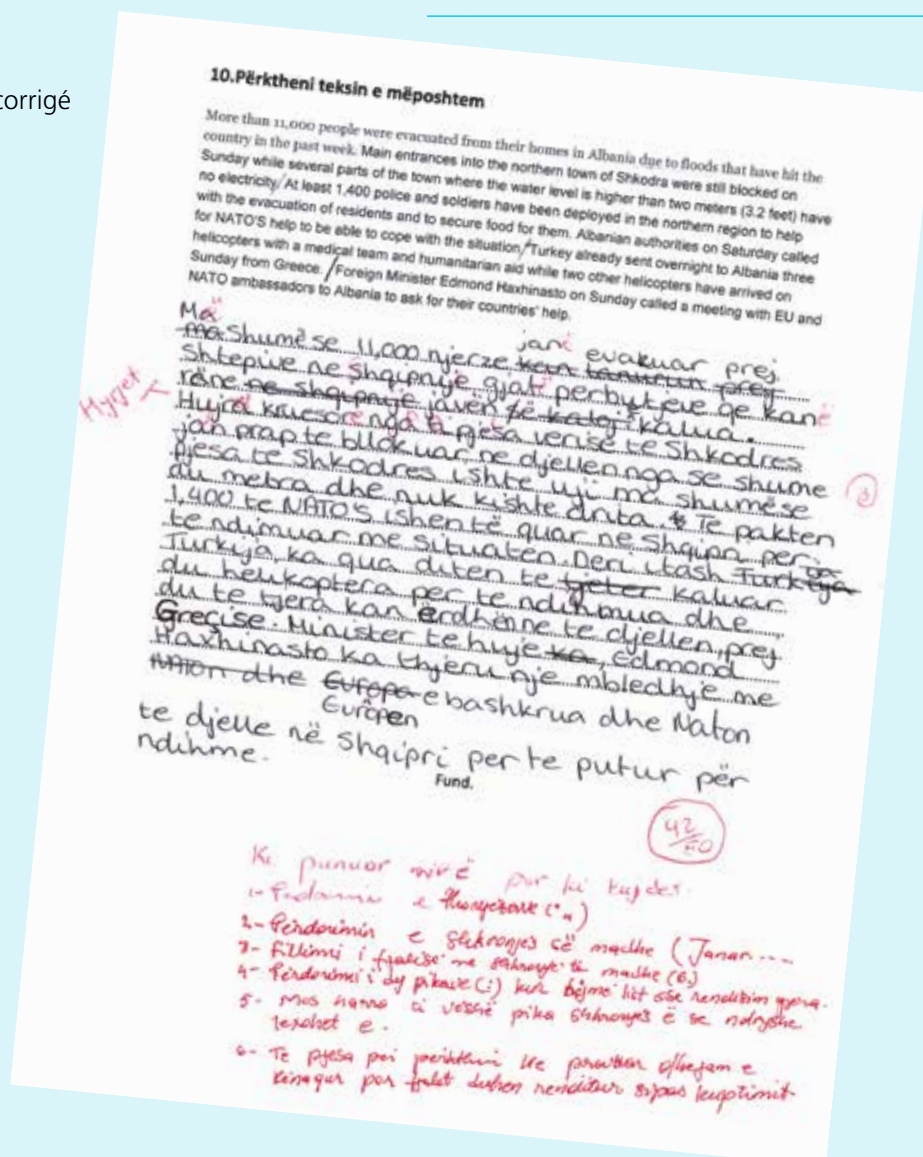 corrigé
10.Përktheni teksin e mëposhtem
More than 11,000 people were evacuated from their homes in Albania due to floods that have hit the
country in the past week. Main entrances into the northern town of Shkodra were still blocked on
Sunday while several parts of the town where the water level is higher than two meters (3.2 feet) have
no electricity/At least 1,400 police and soldiers have been deployed in the northern region to help
with the evacuation of residents and to secure food for them. Albanian authorities on Saturday called
for NATO'S help to be able to cope with the situation/Turkey already sent overnight to Albania three
helicopters with a medical team and humanitarian aid while two other helicopters have arrived on
Sunday from Greece./Foreign Minister Edmond Haxhinasto on Sunday called a meeting with EU and
NATO ambassadors to Albania to ask for their countries' help.
Më janë evakuar prej
ma Shumë se 11,000 njerze kan prej
Shtepive ne Shqipnije gjatë perbytjeve qe kanë
Hyrjet
rëne ne shqipnije javën kalua.
Hujrd kruesore nga pjesa verise te Shkodres
jan prap te bllokuar ne djellen nga se shume
pjesa te Shkodres ishte uji më shumëse
du metra dhe nuk kishte drita. Te pakten
1,400 te NATOS ishen të quar ne Shqipri per
te ndimuar me situaten. Deri itash Turkija
Turkija, ka qua diten te tjeter kaluar
du helikoptera per te ndihmua dhe
du te tjera kan ërdhënne te djellen, prej
Greqise. Minister te huje ka, Edmond
Haxhinasto ka thjeru nje mbledhje me
NATOn dhe Europa e bashkrua dhe Naton
Europen
te djelle në Shqipri per te putur për
ndihme.
Fund.
42/50
Ki punuar mirë por ki kujdes.
1- e thonjezave
2- Përdorimin e Shkronjes së madhe (Janar....
3- Fillimi i fjalise me shkronje të madhe (6)
4- Përdorimi i dy pikave (:) kur bëjmë list ose renditim gjera.
5- Mos harro ti vesh pika Shkronjes ë se ndryshe
lexohet e.
6- Te pjesa per perkthim e
por duhen renditur sipas kuptimit